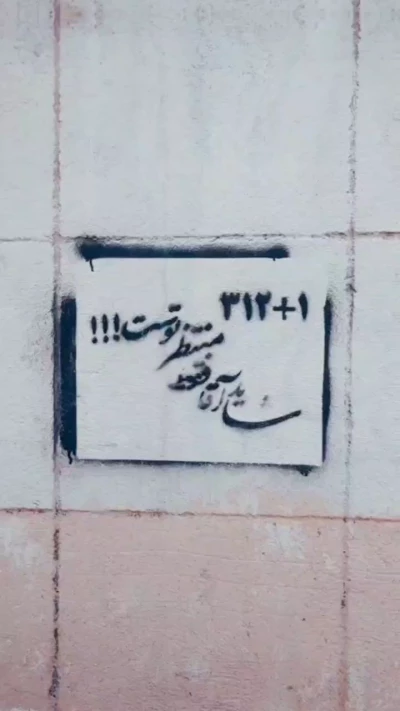 ۳۱۲+۱
شاید آقا فقط
منتظر توست!!!